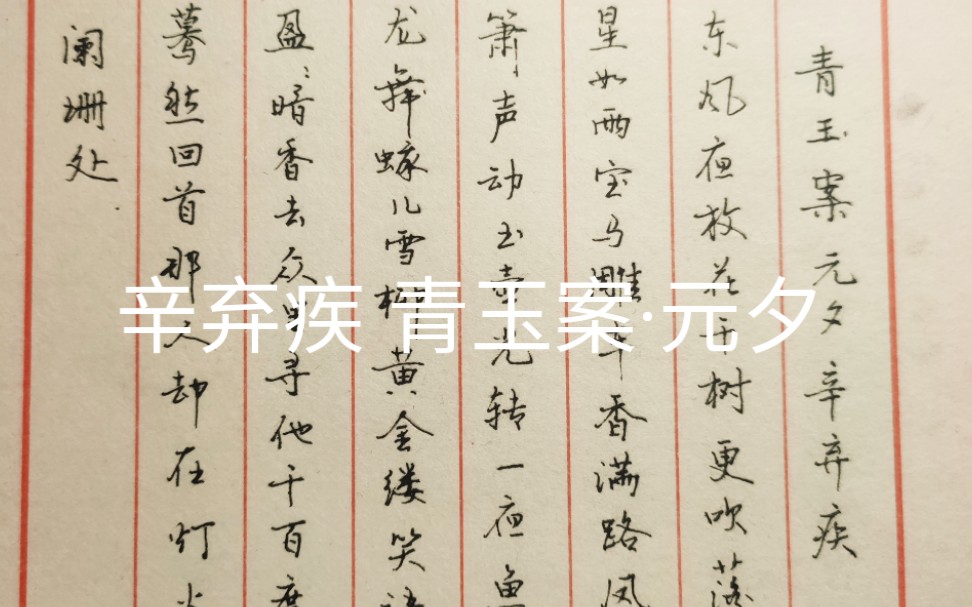 青玉案元夕辛弃疾
东风夜放花千树更吹落
星如雨宝马雕车香满路凤
箫声动玉壶光转一夜鱼
龙舞蛾儿雪柳黄金缕笑语
盈〻暗香去众里寻他千百度
蓦然回首那人却在灯火
阑珊处
辛弃疾 青玉案·元夕